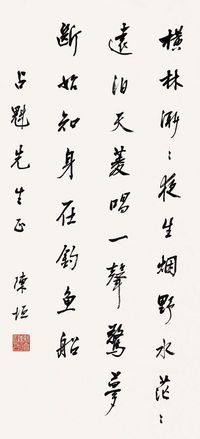 横林渺〻夜生烟野水茫〻
遠泊天菱唱一聲驚夢
斷始知身在釣魚船
占魁先生正
陳垣